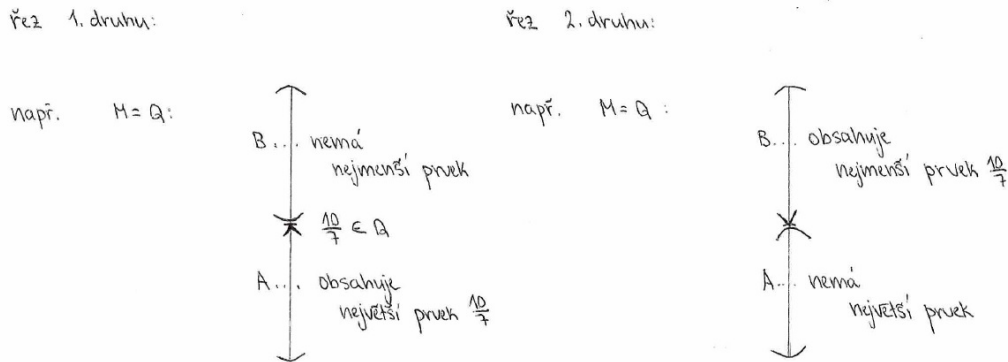 řez 1. druhu:
např. M = Q:
B.... nemá
nejmenší prvek
10/7 ∈ Q
A.... obsahuje
největší prvek 10/7
řez 2. druhu:
např. M = Q:
B.... obsahuje
nejmenší prvek 10/7
A.... nemá
největší prvek